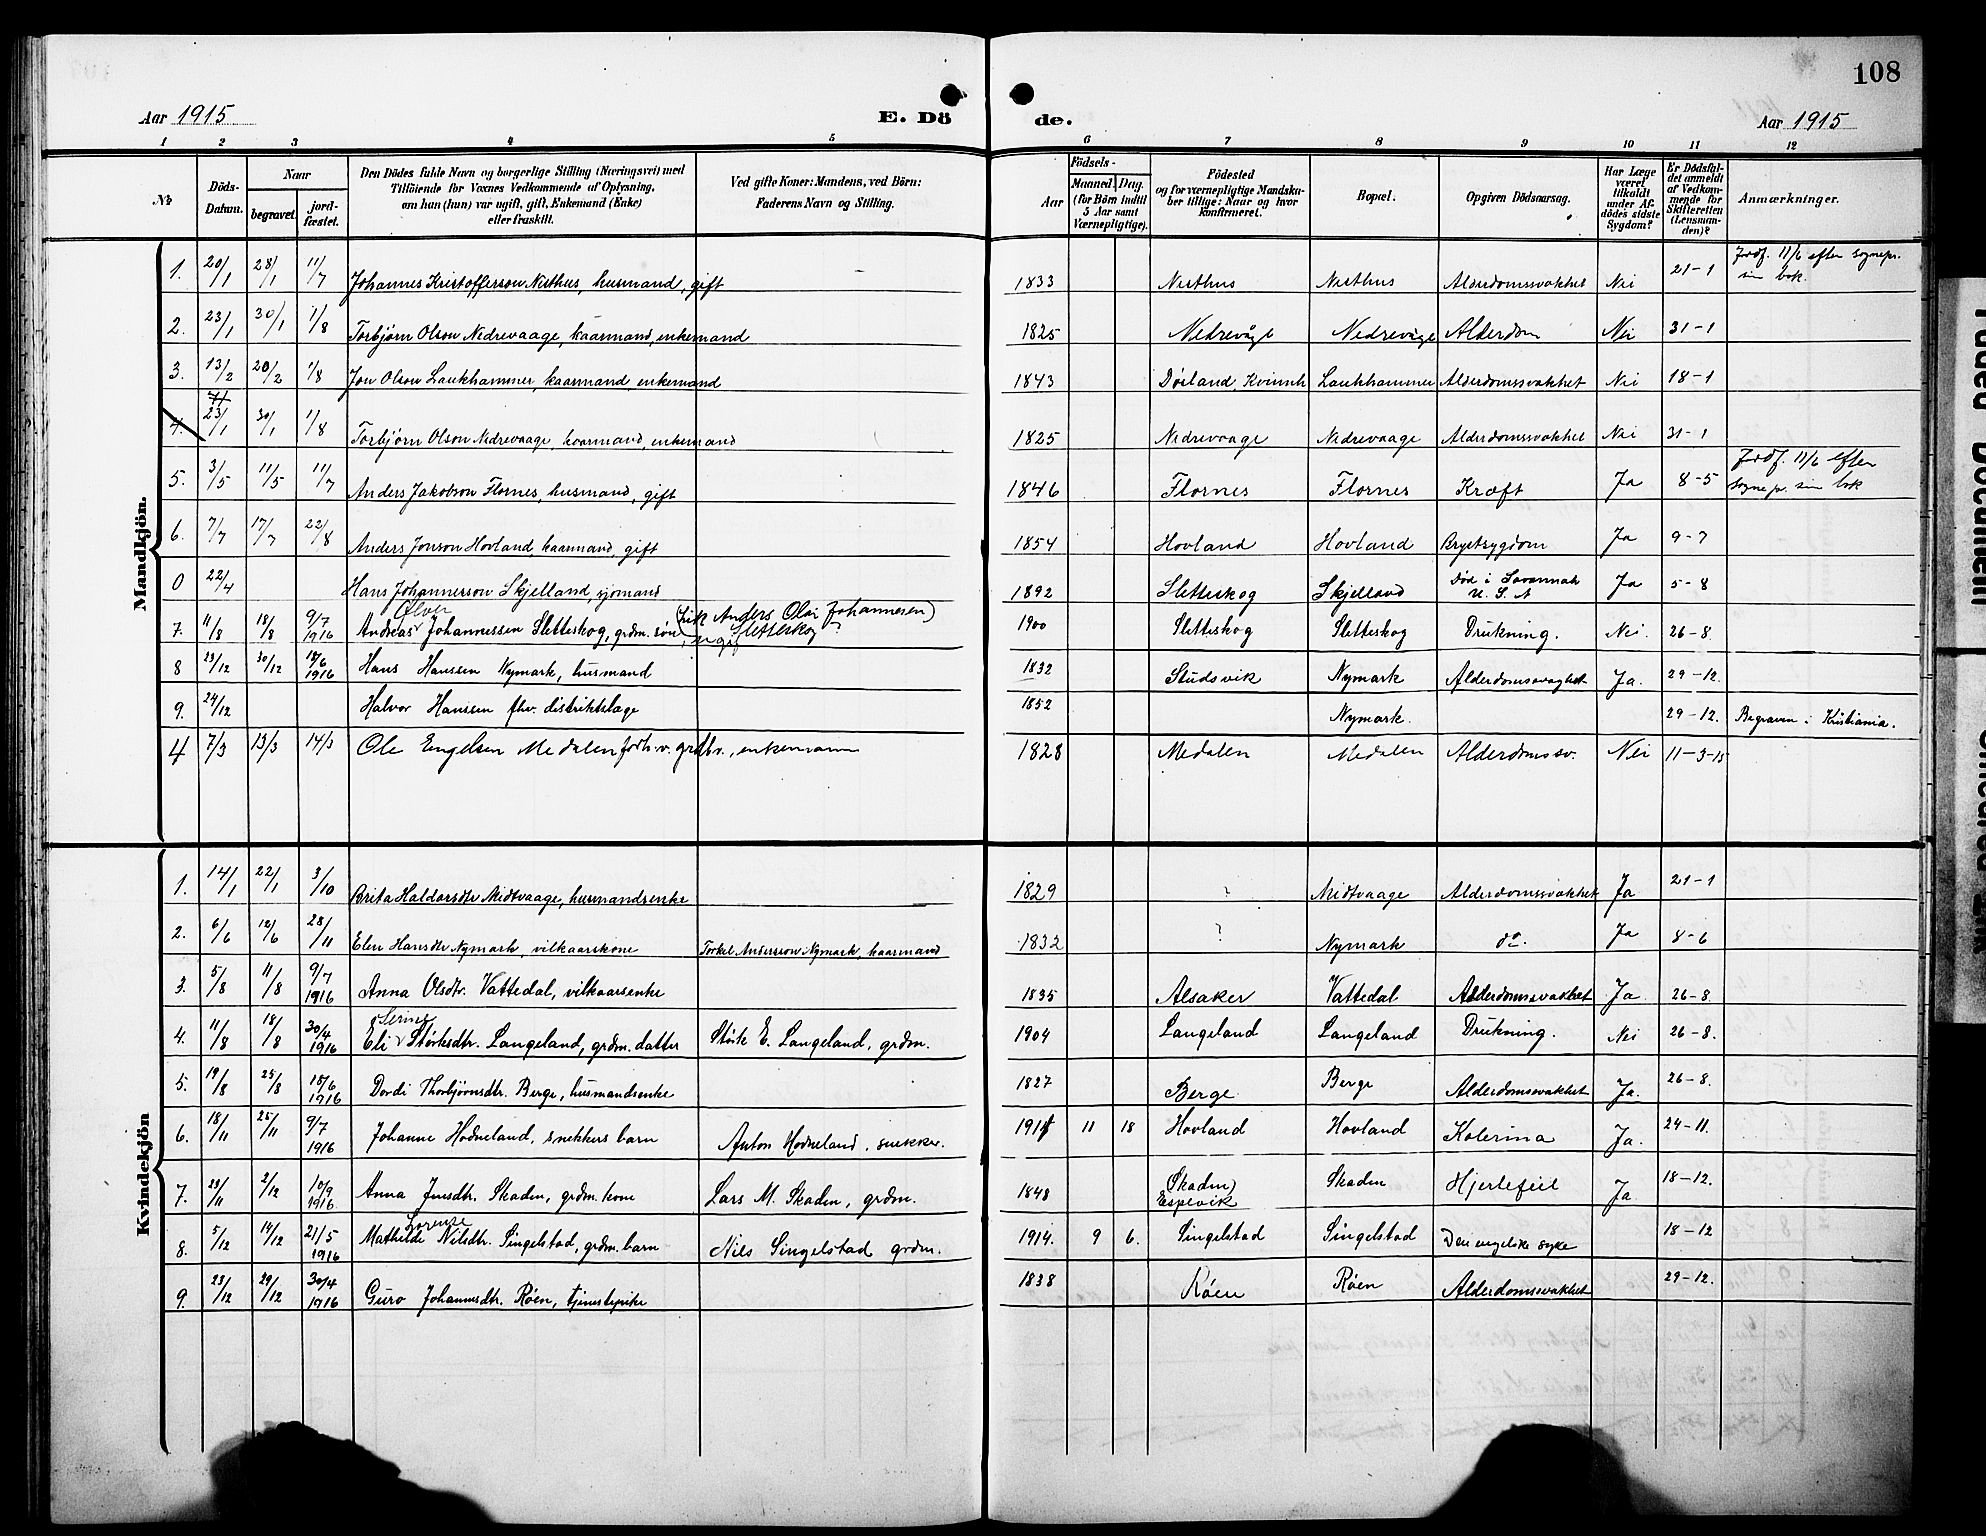 108
Aar 1915 E. Dö de. Aar 1915
1 2 3 4 5 6 7 8 9 10 11 12
№ Döds-Datum. Naar begravet. jord-fæstet. Den Dödes fulde Navn og borgerlige Stilling (Næringsvei) med Tilföiende for Voxnes Vedkommende af Oplysning, om han (hun) var ugift, gift, Enkemand (Enke) eller fraskilt. Ved gifte Koner: Mandens, ved Börn: Faderens Navn og Stilling. Födsels- Aar Maaned. Dag. (for Börn indtil 5 Aar samt Værnepligtige). Födested og for værnepligtige Mandskaber tillige: Naar og hvor konfirmeret. Bopæl. Opgiven Dödsaarsag. Har Læge været tilkaldt under Afdödes sidste Sygdom? Er Dödsfaldet anmeldt af Vedkommende for Skifteretten (Lensmanden)? Anmærkninger.
Mandkjön.
1. 20/1 28/1 11/7 Johannes Kristofferson Nisthus, husmand, gift 1833 Nisthus Nisthus Alderdomssvakhet Nei 21-1 Jordf. 11/6 efter sognepr. sin bok.
2. 23/1 30/1 1/8 Torbjørn Olson Nedrevaage, kaarmand, enkemand 1825 Nedrevåge Nedrevåge Alderdom Nei 31-1
3. 13/2 20/2 1/8 Jon Olson Laukhammer, kaarmand, enkemand 1843 Døsland, Kvinnh Laukhammer Alderdomssvakhet Nei 18-1
4. 23/1 30/1 1/8 Torbjørn Olson Nedrevaage, kaarmand, enkemand 1825 Nedrevaage Nedrevaage Alderdomssvakhet Nei 31-1
5. 3/5 11/5 11/7 Anders Jakobson Flornes, husmand, gift 1846 Flornes Flornes Kræft Ja 8-5 Jordf. 11/6 efter sognepr. sin bok
6. 7/7 17/7 22/8 Anders Jonson Hovland, kaarmand, gift 1854 Hovland Hovland Brystsygdom Ja 9-7
0 22/4 Hans Johannesson Skjelland, sjömand 1892 Sletteskog Skjelland Død i Savannah U. S. A Ja 5-8
7. 11/8 18/8 9/7 1916 Andreas Ølver Johannessen Sletteskog, grdm. søn, ugift (Lik Anders Olai Johannesen) Sletteskog ? 1900 Sletteskog Sletteskog Drukning. Nei. 26-8.
8 23/12 30/12 18/6 1916 Hans Hanssen Nymark, husmand 1832 Studsvik Nymark Alderdomssvaghet Ja. 29-12.
9. 24/12 Halvor Hanssen fhv. distriktslæge 1852 Nymark. 29-12. Begraven i Kristiania.
4 7/3 13/3 14/3 Ole Engelsen Medalen forh. v. grdbr., enkemann 1828 Medalen Medalen Alderdomssv. Nei 11-3-15
Kvindekjön
1. 14/1 22/1 3/10 Brita Haldorsdtr Midtvaage, husmandsenke 1829 ? Midtvaage Alderdomssvakhet Ja 21-1
2. 6/6 12/6 28/11 Elen Hansdtr Nymark, vilkaarskone Torkel Andersson Nymark, kaarmand 1832 ? Nymark do. Ja 8-6
3. 5/8 11/8 9/7 1916 Anna Olsdtr. Vattedal, vilkaarsenke 1835 Alsaker Vattedal Alderdomssvakhet Ja 26-8.
4. 11/8 18/8 30/4 1916 Eli Serine Størksdtr. Langeland, grdm. datter Størk E. Langeland, grdm. 1904 Langeland Langeland Drukning. Nei 26-8.
5. 19/8 25/8 18/6 1916 Dordi Thorbjörnsdtr. Berge, husmandsenke 1827 Berge Berge Alderdomssvakhet Ja. 26-8.
6. 18/11 25/11 9/7 1916 Johanne Hodneland, snekkers barn Anton Hodneland, snekker. 1914 11 18 Hovland Hovland Kolerina Ja. 24-11.
7. 23/11 2/12 10/9 1916. Anna Jensdtr. Skaden, grdm. kone Lars M. Skaden, grdm. 1848 (Skaden) Espevik Skaden Hjertefeil Ja 18-12.
8. 5/12 14/12 21/5 1916 Mathilde Lorense Nilsdtr. Singelstad, grdm. barn Nils Singelstad grdm. 1914. 9 6. Singelstad Singelstad Den engelske syke 18-12
9. 23/12 29/12 30/4 1916 Guro Johannesdtr. Røen, tjenestepike 1838 Røen Røen Alderdomssvakhet 29-12.